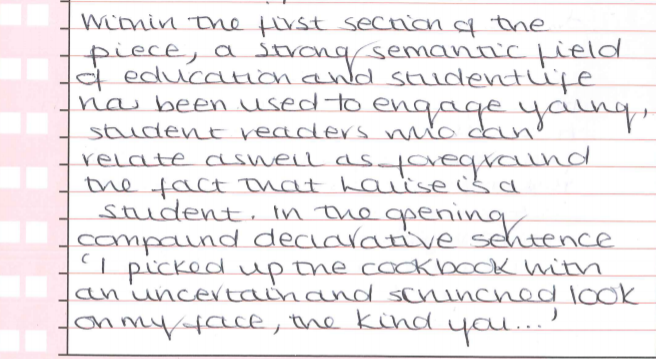 Within the first section of the
piece, a strong semantic field
of education and student life
has been used to engage young,
student readers who can
relate aswell as foreground
the fact that Louise is a
student. In the opening
compound declarative sentence
'I picked up the cookbook with
an uncertain and scrunched look
on my face, the kind you...'